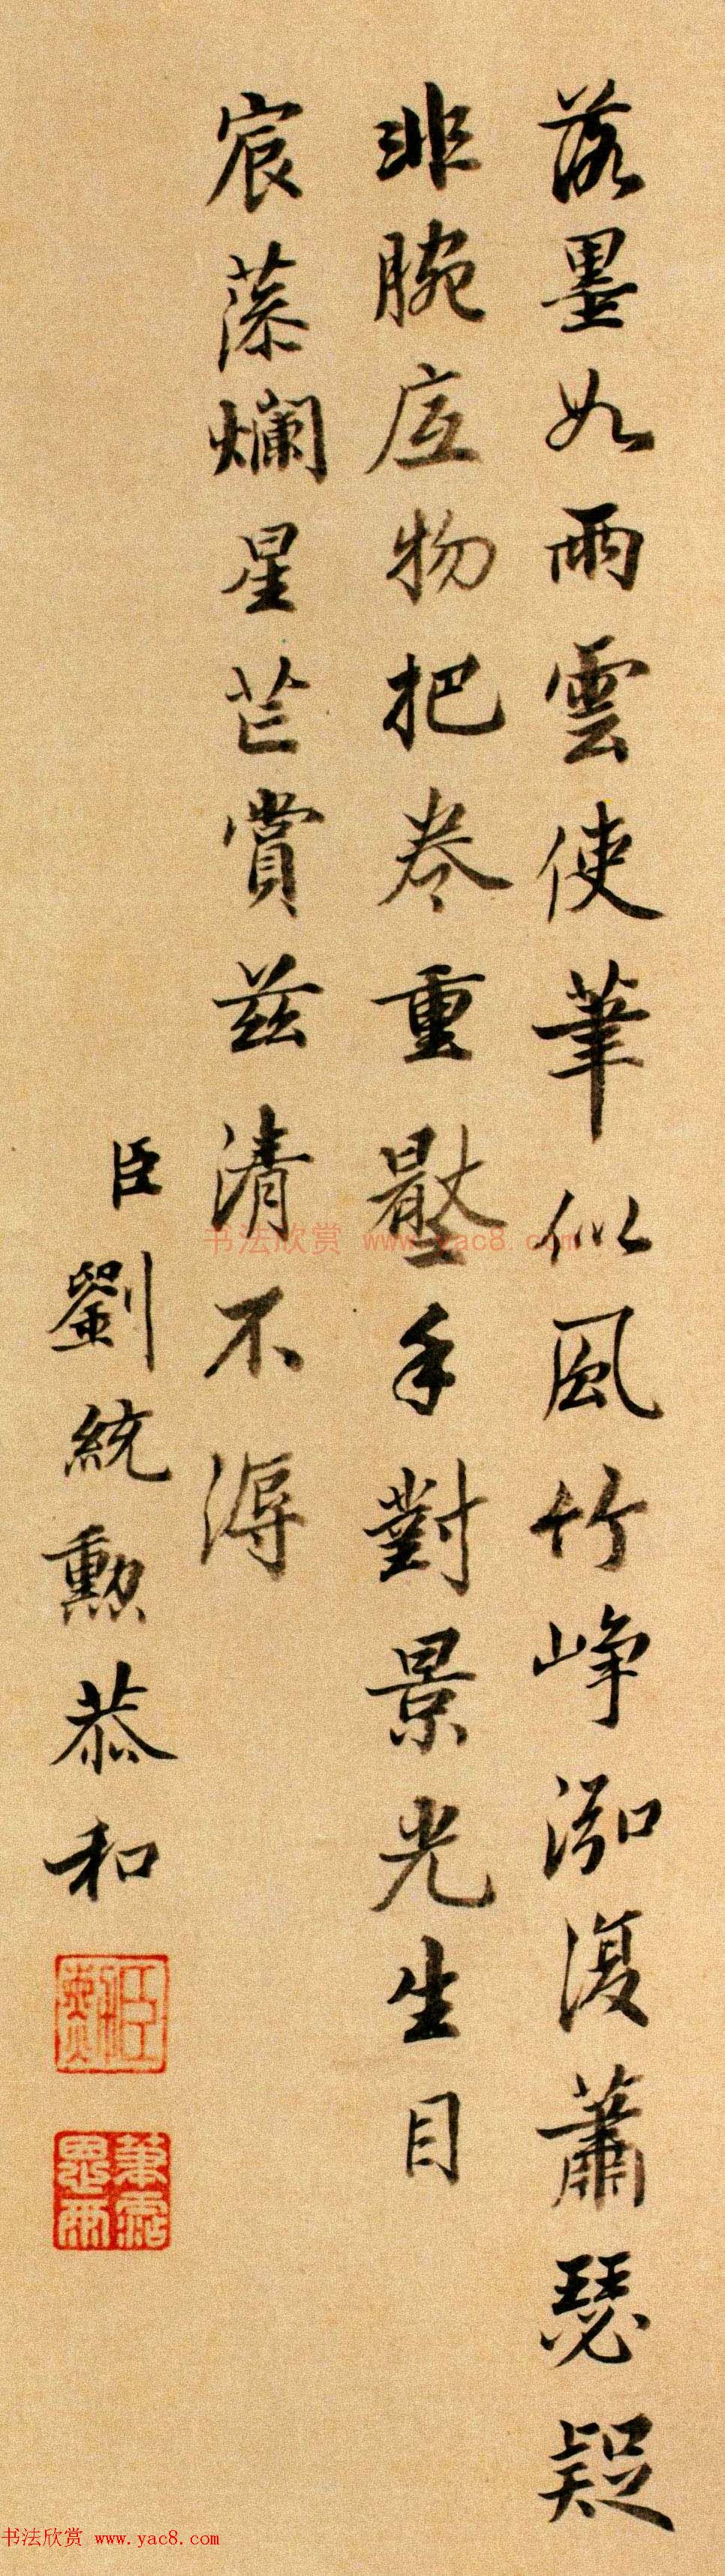 落墨如雨雲使筆似風竹崢泓復蕭瑟疑
非腕底物把卷重手對景光生目
宸藻爛星芒賞茲清不溽
臣劉統勳恭和
筆霑恩雨
书法欣赏 www.yac8.com
书法欣赏 www.yac8.com